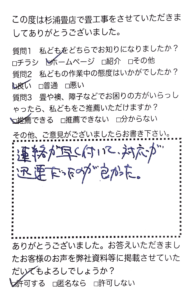 この度は杉浦畳店で畳工事をさせていただきま
してありがとうございました。
質問1 私どもをどちらでお知りになりましたか?
□チラシ □ホームページ □紹介 □その他
質問2 私どもの作業中の態度はいかがでしたか?
□良い □普通 □悪い
質問3 畳や襖、障子などでお困りの方がいらっし
ゃったら、私どもをご推薦いただけますか?
□推薦できる □推薦できない □分からない
その他、ご意見がございましたらお書き下さい。
連絡が早し、対応が
迅速だったのが良かった。
ありがとうございました。お答えいただきまし
たお客様のお声を弊社資料等に掲載させていた
だいてもよろしでしょうか?
□許可する □匿名なら □許可しない